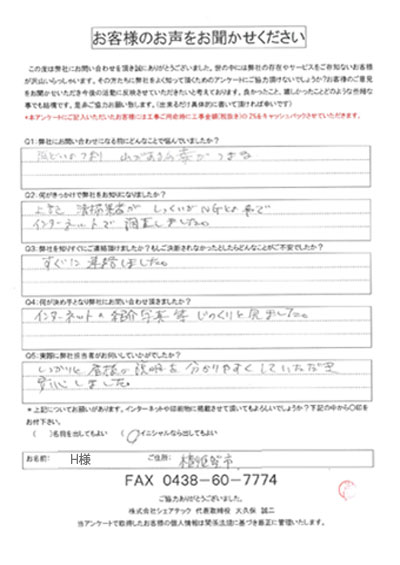 お客様のお声をお聞かせください
この度は弊社にお問い合わせを頂き誠にありがとうございました。世の中には弊社の存在やサービスをご存知ないお客様
が沢山いらっしゃいます。その方たちに弊社をよく知って頂くためのアンケートにご協力頂けないでしょうか?お客様のご意見
をお聞かせいただき今後の活動に反映させていただきたいと考えております。良かったこと、嬉しかったことどのような些細な
事でも結構です。是非ご協力お願い致します。(出来るだけ具体的に書いて頂ければ幸いです)
*本アンケートにご記入いただいたお客様には工事ご用命時に工事金額(税抜き)の2%をキャッシュバックさせていただきます。
Q1:弊社にお問い合わせになる前にどんなことで悩んでいましたか?
Q2:何がきっかけで弊社をお知りになりましたか?
インターネットで 調査しました。
Q3:弊社を知りすぐにご連絡頂けましたか?もしご決断されなかったとしたらどんなことがご不安でしたか?
すぐに連絡しました。
Q4:何が決め手となり弊社にお問い合わせ頂きましたか?
インターネットの紹介写真等じっくりと見ました。
Q5:実際に弊社担当者がお伺いしていかがでしたか?
しっかりと 説明を 分かりやすくしていただき
安心しました。
*上記についてお願いがあります。インターネットや印刷物に掲載させて頂いてもよろしいでしょうか?下記の中から○印を
お付け下さい。
( )名前を出してもよい ( )イニシャルなら出してもよい
お名前: H様 ご住所: 市
FAX 0438-60-7774
ご協力ありがとうございました。
株式会社シェアテック 代表取締役 大久保 誠二
当アンケートで取得したお客様の個人情報は関係法規に基づき厳正に管理いたします。